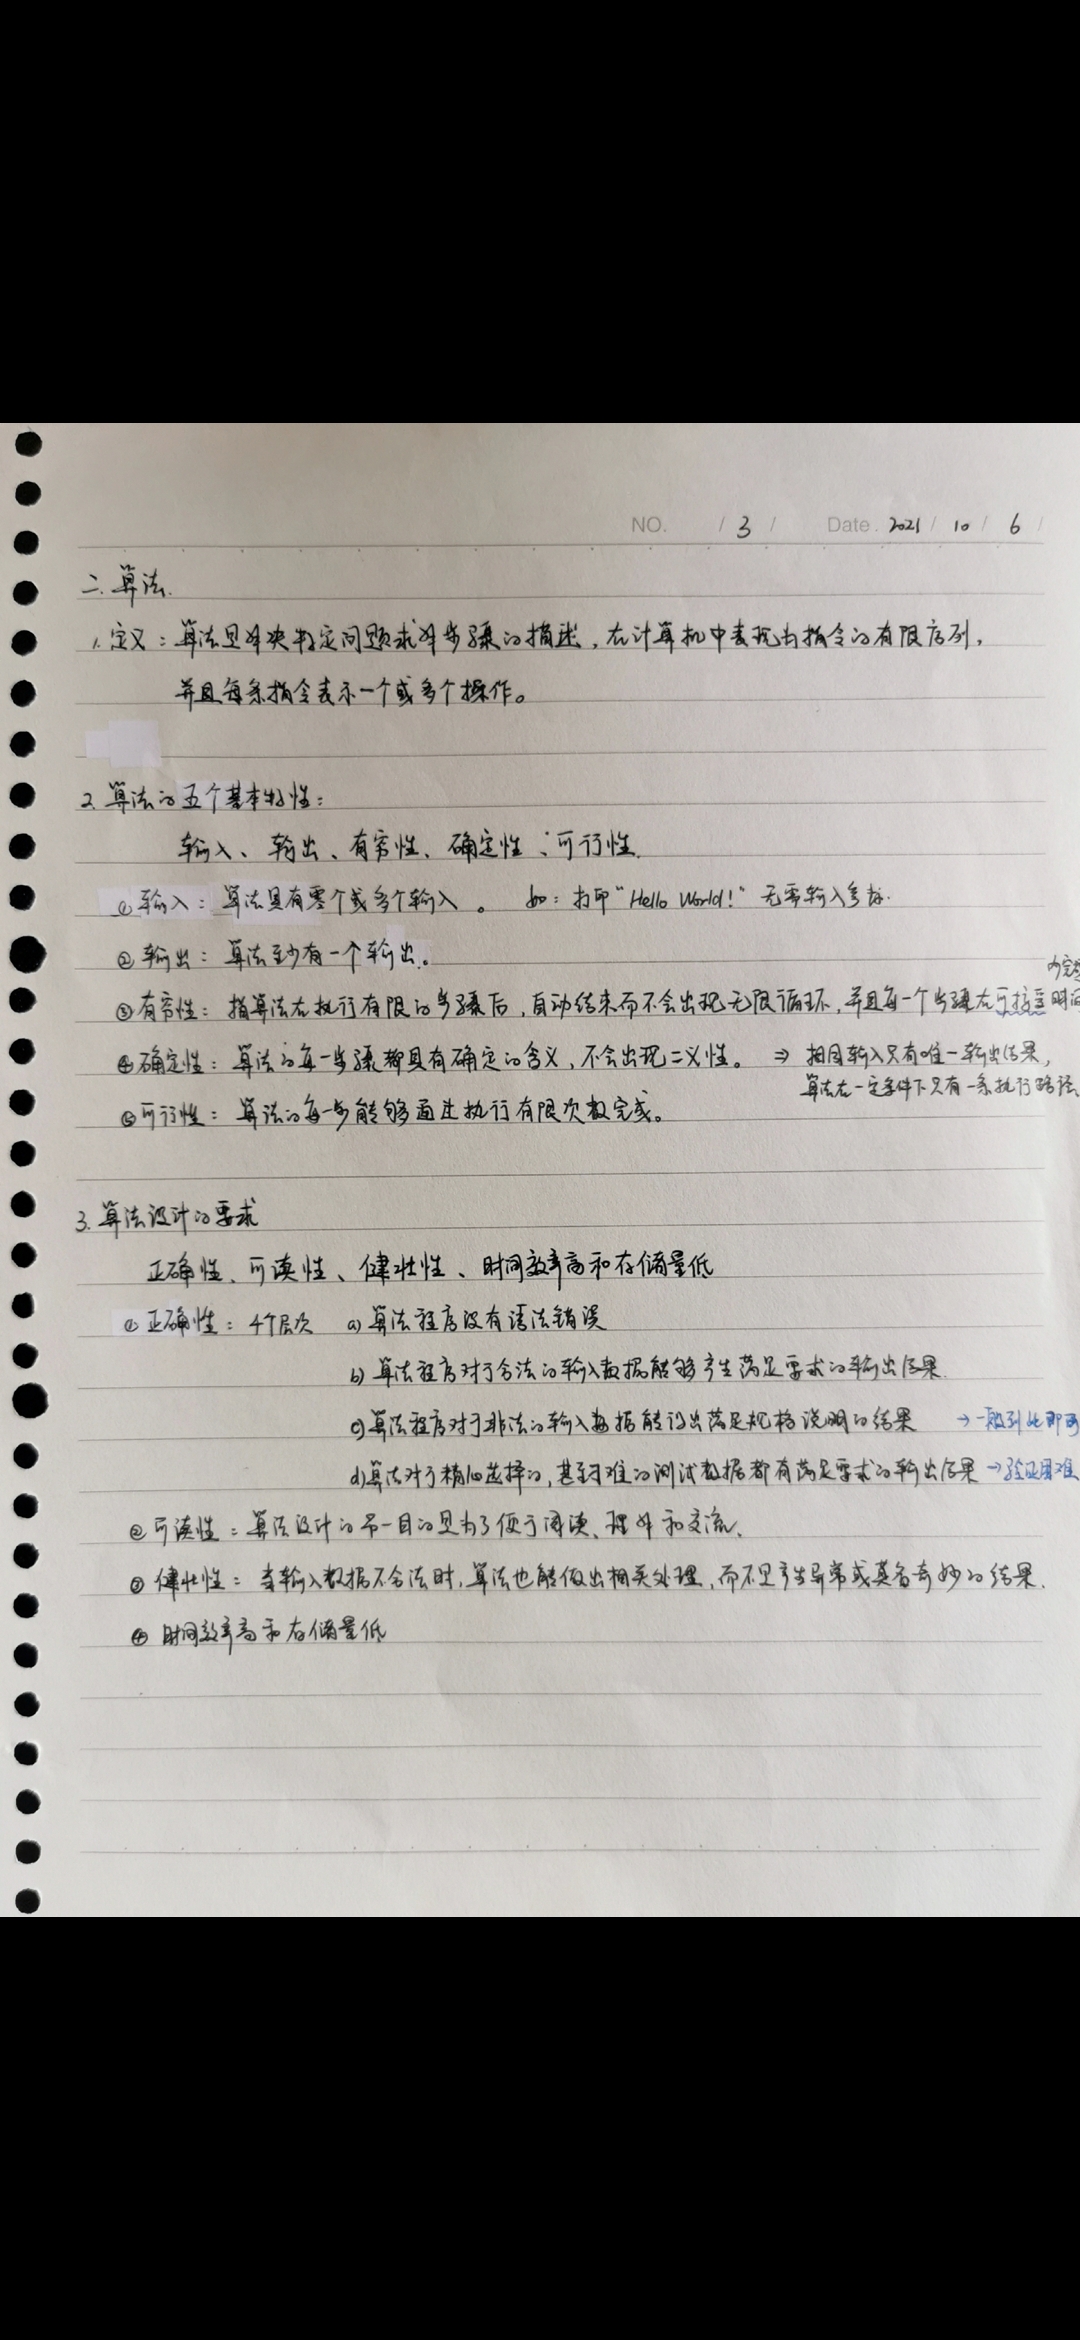 NO. / 3 / Date. 2021 / 10 / 6 /
二. 算法.
1. 定义：算法是解决特定问题求解步骤的描述，在计算机中表现为指令的有限序列，
并且每条指令表示一个或多个操作。
2. 算法的五个基本特性：
输入、输出、有穷性、确定性、可行性.
① 输入：算法具有零个或多个输入。 如：打印“Hello World!” 无需输入参数.
② 输出：算法至少有一个输出。
内完成
③ 有穷性：指算法在执行有限的步骤后，自动结束而不会出现无限循环，并且每一个步骤在可接受时间
④ 确定性：算法的每一步骤都具有确定的含义，不会出现二义性。 ⇒ 相同输入只有唯一输出结果，
算法在一定条件下只有一条执行路径
⑤ 可行性：算法的每一步能够通过执行有限次数完成。
3. 算法设计的要求
正确性、可读性、健壮性、时间效率高和存储量低
① 正确性：4个层次 a) 算法程序没有语法错误
b) 算法程序对于合法的输入数据能够产生满足要求的输出结果.
c) 算法程序对于非法的输入数据能得出满足规格说明的结果 → 一般到此即可
d) 算法对于精心选择的，甚至刁难的测试数据都有满足要求的输出结果 → 验证困难
② 可读性：算法设计的另一目的是为了便于阅读、理解和交流.
③ 健壮性：当输入数据不合法时，算法也能做出相关处理，而不是产生异常或莫名奇妙的结果.
④ 时间效率高和存储量低